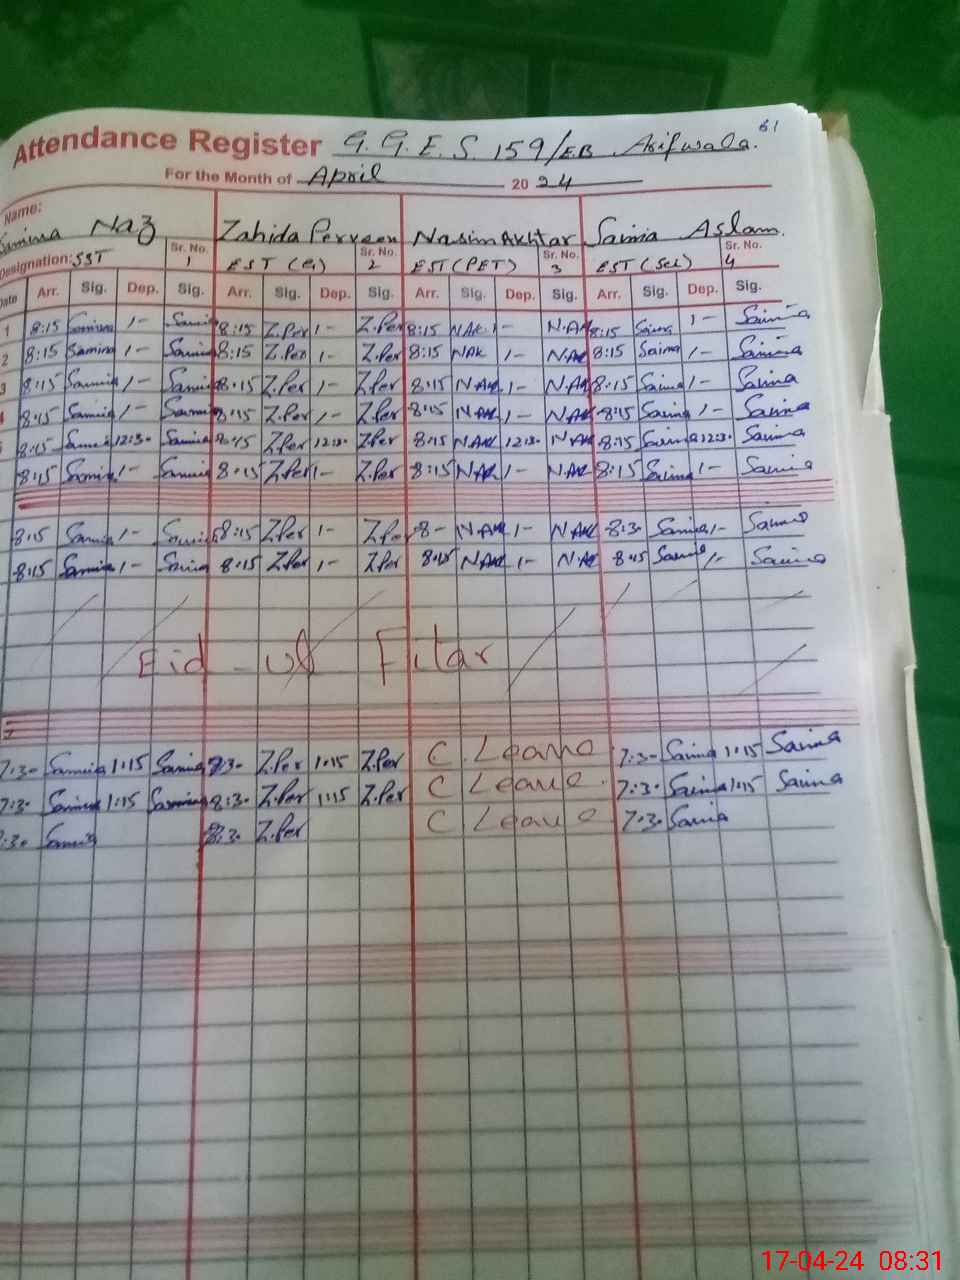 61
Attendance Register G.G.E.S 159/EB Arifwala.
For the Month of April 2024
Name:
Samina Naz Zahida Perveen Nasim Akhtar Saima Aslam.
Designation: SST Sr. No. 1 EST (G) Sr. No. 2 EST (PET) Sr. No. 3 EST (Sci) Sr. No. 4
Date Arr. Sig. Dep. Sig. Arr. Sig. Dep. Sig. Arr. Sig. Dep. Sig. Arr. Sig. Dep. Sig.
1 8:15 Samina 1- Samina 8:15 Z.Per 1- Z.Per 8:15 NAK 1- N.AK 8:15 Saima 1- Saima
2 8:15 Samina 1- Samina 8:15 Z.Per 1- Z.Per 8:15 NAK 1- N.AK 8:15 Saima 1- Saima
3 8:15 Samina 1- Samina 8:15 Z.Per 1- Z.Per 8:15 N.AK 1- N.AK 8:15 Saima 1- Saima
4 8:15 Samina 1- Samina 8:15 Z.Per 1- Z.Per 8:15 N.AK 1- N.AK 8:15 Saima 1- Saima
5 8:15 Samina 12:3- Samina 8:15 Z.Per 12:3- Z.Per 8:15 N.AK 12:3- N.AK 8:15 Saima 12:3- Saima
8:15 Samina 1- Samina 8:15 Z.Per 1- Z.Per 8:15 N.AK 1- N.AK 8:15 Saima 1- Saima
8:15 Samina 1- Samina 8:15 Z.Per 1- Z.Per 8- N.AK 1- N.AK 8:3- Saima 1- Saima
8:15 Samina 1- Samina 8:15 Z.Per 1- Z.Per 8:15 N.AK 1- N.AK 8:15 Saima 1- Saima
Eid-ul Fitar
7:3- Samina 1:15 Samina 8:3- Z.Per 1:15 Z.Per C. Leave 7:3- Saima 1:15 Saima
7:3- Samina 1:15 Samina 8:3- Z.Per 1:15 Z.Per C Leave 7:3- Saima 1:15 Saima
7:3- Samina 8:3- Z.Per C Leave 7:3- Saima
17-04-24 08:31